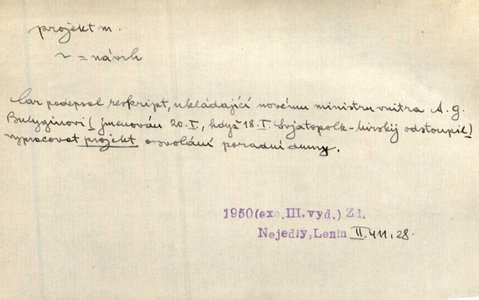 projekt m.
~ = návrh
Car podepsal reskript, ukládající novému ministru vnitra A. G.
Bulyginovi (jmenován 20.I., když 18.I. Svjatopolk-Mirskij odstoupil)
vypracovat projekt o svolání poradní dumy.
1950 (exc. III. vyd.) Zd.
Nejedlý, Lenin II. 411. 28.